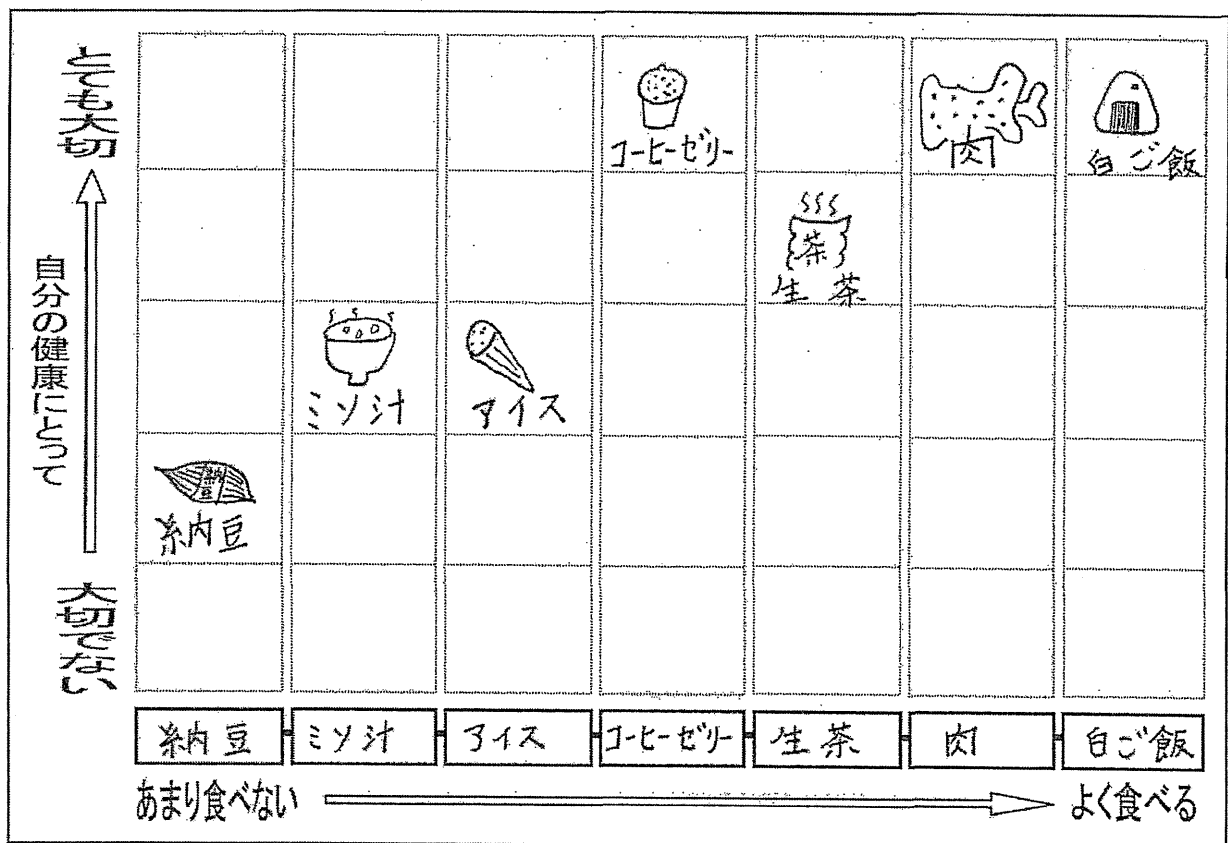 とても大切
自分の健康にとって
大切でない
コーヒーゼリー
肉
白ご飯
茶
生茶
ミソ汁
アイス
納豆
納豆
納豆
ミソ汁
アイス
コーヒーゼリー
生茶
肉
白ご飯
あまり食べない
よく食べる